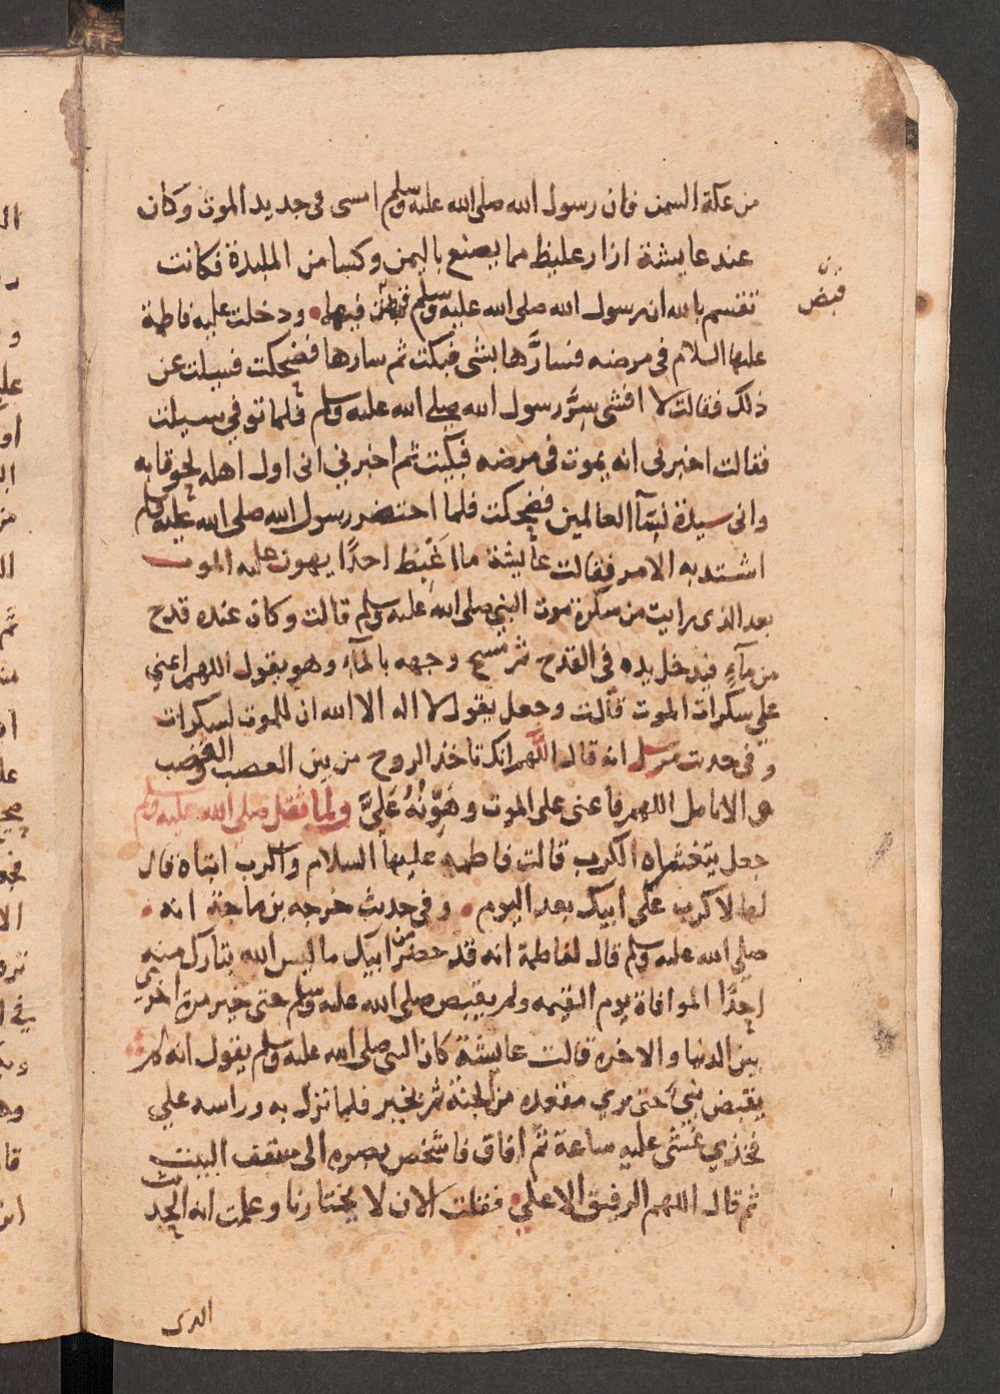 من عكة السمن فان رسول الله صلى الله عليه وسلم امسى في جديد الموت وكان
عند عايشة ازار غليظ مما يصنع باليمن وكسا من الملبدة فكانت
تقسم بالله ان رسول الله صلى الله عليه وسلم قبض فيهما ودخلت عليه فاطمة
قبض
عليها السلام في مرضه فسارَّها بشى فبكت ثم سارها فضحكت فسيلت عن
ذلك فقالت لا افشى سِرَّ رسول الله صلى الله عليه وسلم فلما توفي سيلت
فقالت اخبرنى انه يموت في مرضه فبكيت ثم اخبرني انى اول اهله لحوقا به
وانى سيدة نسآ العالمين فضحكت فلما احتضر رسول الله صلى الله عليه وسلم
اشتد به الامر فقالت عايشة ما اَغْبِط احدًا يهون عليه الموت
بعد الذى رايت من سكرة موت النبي صلى الله عليه وسلم قالت وكان عنده قدح
من مآءٍ فيدخل يده في القدح ثم مسح وجهه بالمآء وهو يقول اللهم اعني
على سكرات الموت قالت وجعل يقول لا اله الا الله ان للموت لسكرات
وفي حديث مرسل انه قال اللَّهم انك تاخذ الروح من بين العصب والقصب
والانامل اللهم فاعنى على الموت وهَوِّنْهُ عَلَيَّ ولما ثقل صلى الله عليه وسلم
جعل يتغشاه الكرب قالت فاطمه عليها السلام واكرب ابتاه قال
لها لا كرب على ابيك بعد اليوم وفي حديث خرجه بن ماجة انه
صلى الله عليه وسلم قال لفاطمة انه قد حضر من ابيك ما ليس الله بتارك منه
احدًا الموافاة يوم القيمه ولم يقبض صلى الله عليه وسلم حتى خير مرة اخري
بين الدنيا والاخره قالت عايشة كان النبى صلى الله عليه وسلم يقول انه لم
يقبض نبي حتى يري مقعده من الجنة ثم يخير فلما نزل به وراسه علي
فخذي غشى عليه ساعة ثمَّ افاق فاشخص بصره الى سقف البيت
ثم قال اللهم الرفيق الاعلي فقلت الان لا يختارنا وعلمت انه الحديث
الذى